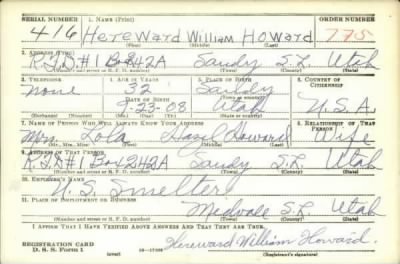 SERIAL NUMBER 1. NAME (Print) ORDER NUMBER
416 Hereward William Howard 775
(First) (Middle) (Last)
2. ADDRESS (Print)
R.F.D.#1 Box 242A Sandy S.L. Utah
(Number and street or R. F. D. number) (Town) (County) (State)
3. TELEPHONE 4. AGE IN YEARS 5. PLACE OF BIRTH 6. COUNTRY OF CITIZENSHIP
None 32 Sandy
DATE OF BIRTH
9-23-08 Utah U.S.A.
(Exchange) (Number) (Mo.) (Day) (Yr.) (State or country)
7. NAME OF PERSON WHO WILL ALWAYS KNOW YOUR ADDRESS 8. RELATIONSHIP OF THAT PERSON
Mrs. Lola Hazel Howard Wife
(Mr., Mrs., Miss) (First) (Middle) (Last)
9. ADDRESS OF THAT PERSON
R.F.D.#1 Box 242A Sandy S.L. Utah
(Number and street or R. F. D. number) (Town) (County) (State)
10. EMPLOYER'S NAME
U.S. Smelter
11. PLACE OF EMPLOYMENT OR BUSINESS
Midvale S.L. Utah
(Number and street or R. F. D. number) (Town) (County) (State)
I AFFIRM THAT I HAVE VERIFIED ABOVE ANSWERS AND THAT THEY ARE TRUE.
REGISTRATION CARD
D. S. S. Form 1 (over) Hereward William Howard.
(Registrant's signature)